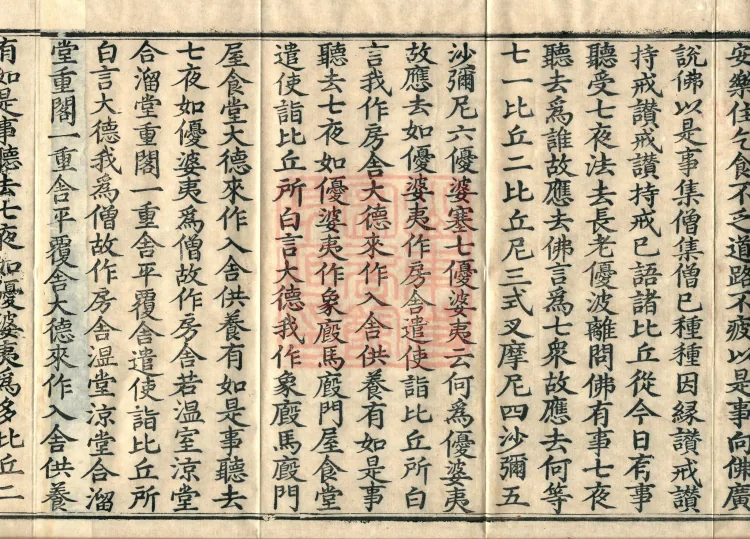 安樂住乞食不乏道路不疲以是事向佛廣
說佛以是事集僧集僧已種種因緣讃戒讃
持戒讃戒讃持戒已語諸比丘從今日有事
聽受七夜法去長老優波離問佛有事七夜
聽去爲誰故應去佛言爲七衆故應去何等
七一比丘二比丘尼三式叉摩尼四沙彌五
沙彌尼六優婆塞七優婆夷云何爲優婆夷
故應去如優婆夷作房舎遣使詣比丘所白
言我作房舎大德來作入舎供養有如是事
聽去七夜如優婆夷作象廐馬廐門屋食堂
遣使詣比丘所白言大德我作象廐馬廐門
屋食堂大德來作入舎供養有如是事聽去
七夜如優婆夷爲僧故作房舎若温室涼堂
合溜堂重閣一重舎平覆舎遣使詣比丘所
白言大德我爲僧故作房舎温堂涼堂合溜
堂重閣一重舎平覆舎大德來作入舎供養
有如是事聽去七夜如優婆夷爲多比丘二